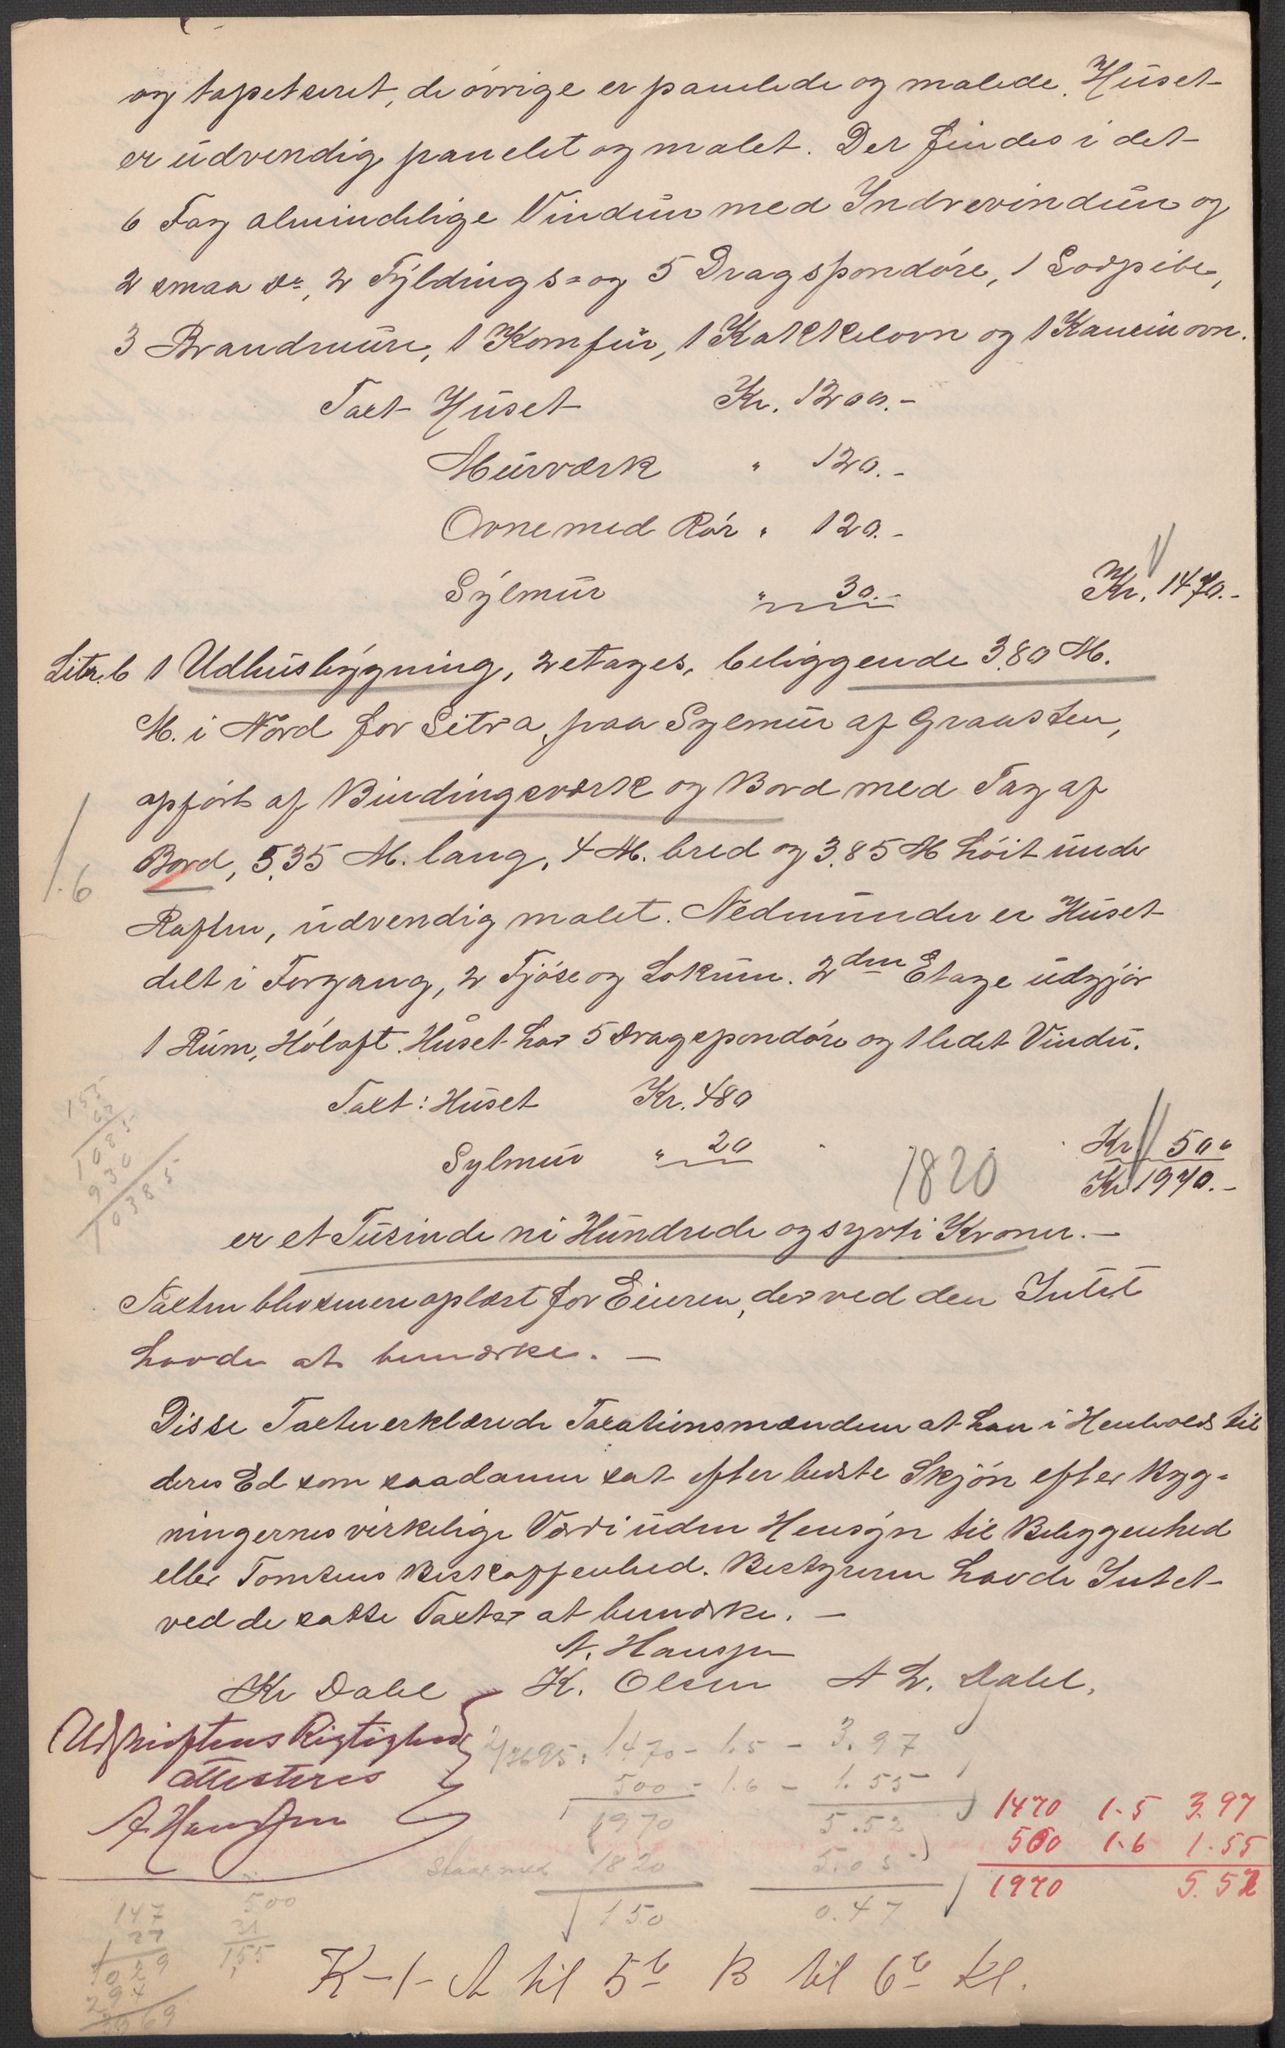 og tapetseret, de övrige er panelede og malede. Huset
er udvendig panelet og malet. Der findes i det
6 Fag almindelige Vinduer med Indrevinduer og
2 smaa do, 2 Fyldings= og 5 Dragspondöre, 1 Lodpibe,
3 Brandmure, 1 Komfür, 1 Kakkelovn og 1 Kaminovn.
Taxt Huset Kr. 1200.-
Murværk " 120.-
Ovne med Rör " 120.-
Sylmur " 30.- Kr. 1470.-
Litr. b 1 Udhusbygning, 2 etages, beliggende 3.80 M.
M. i Nord for Litra a, paa Sylmur af Graasten,
opfört af Bindingsværk og Bord med Tag af
Bord, 5.35 M. lang, 4 M. bred og 3.85 M höit under
1.6
Raften, udvendig malet. Nedenunder er Huset
delt i Forgang, 2 Fjöse og Lokum. 2den Etage udgjör
1 Rum, Höloft. Huset har 5 Dragspondöre og 1 ledet Vindu.
Taxt: Huset Kr. 480
Sylmur " 20 Kr 500
1820 Kr 1970.-
153
67
1085
930
10385
er et Tusinde ni Hundrede og sytti Kroner.-
Taxten blev senere oplæst for Eieren, der ved den Intet
havde at bemærke. -
Disse Taxter erklærede Taxationsmændene at han i Henhold til
deres Ed som saadanne sat efter bedste Skjön efter Byg-
ningernes virkelige Værdi uden Hensyn til Beliggenhed
eller Tomtens Beskaffenhed. Bestyreren havde Intet
ved de satte Taxter at bemærke. -
A. Hansen
Kr Dahl K. Olsen A L. Dahl.
Udskriftens Rigtighed
attesteres
A. Hansen
2/7695: 1470 - 1.5 - 3.97
500 - 1.6 - 1.55
1970 5.52
1820 5.05
150 0.47
1470 1.5 3.97
500 1.6 1.55
1970 5.52
147
27
1029
294
3969
500
31
1,55
K-1- A til 5te B til 6te Kl.